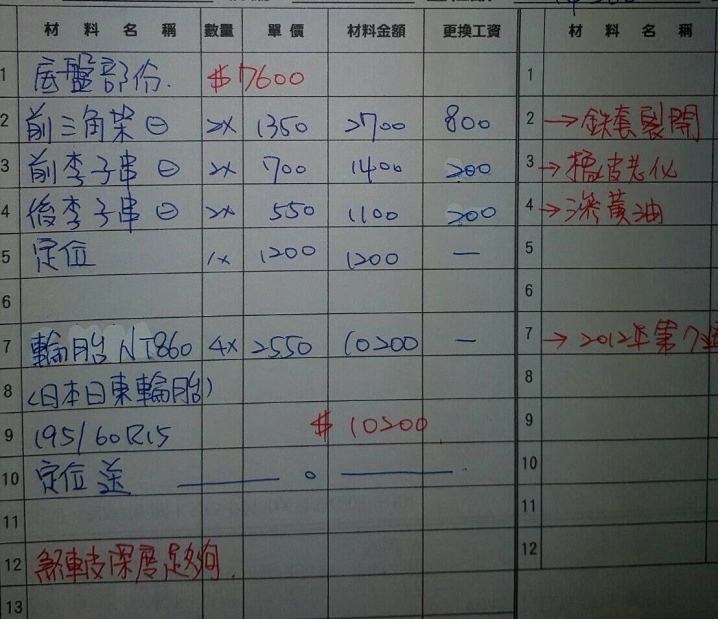 材料名稱 數量 單價 材料金額 更換工資 材料名稱
1 底盤部份. $7600 1
2 前三角架㊀ 2x 1350 2700 800 2 →鉄套裂開
3 前李子串㊀ 2x 700 1400 200 3 →橡皮老化
4 後李子串㊀ 2x 550 1100 200 4 →滲黃油
5 定位 1x 1200 1200 — 5
6 6
7 輪胎 NT860 4x 2550 10200 — 7 → 2012年第7週
8 (日本日東輪胎) 8
9 195/60R15 $ 10200 9
10 定位 送 — 0 — 10
11 11
12 煞車皮深度足夠. 12
13